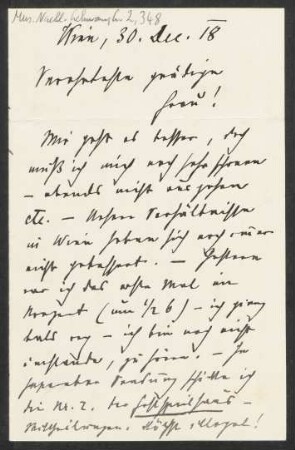 Mus. Nachl. Schwanzh. 2, 348
Wien, 30. Dec. 18
Verehrteste gnädige
Frau!
Mir geht es besser, doch
muß ich mich noch sehr schonen
– abends nicht ausgehen
etc. – Unsere Verhältnisse
in Wien haben sich noch immer
nicht gebessert. – Gestern
war ich das erste Mal im
Konzert (um ½ 6) – ich ging
bald weg – ich bin noch nicht
imstande, zu hören. – In
separater Sendung schicke ich
die Nr. 2. der Festspielhaus-
Mittheilungen.